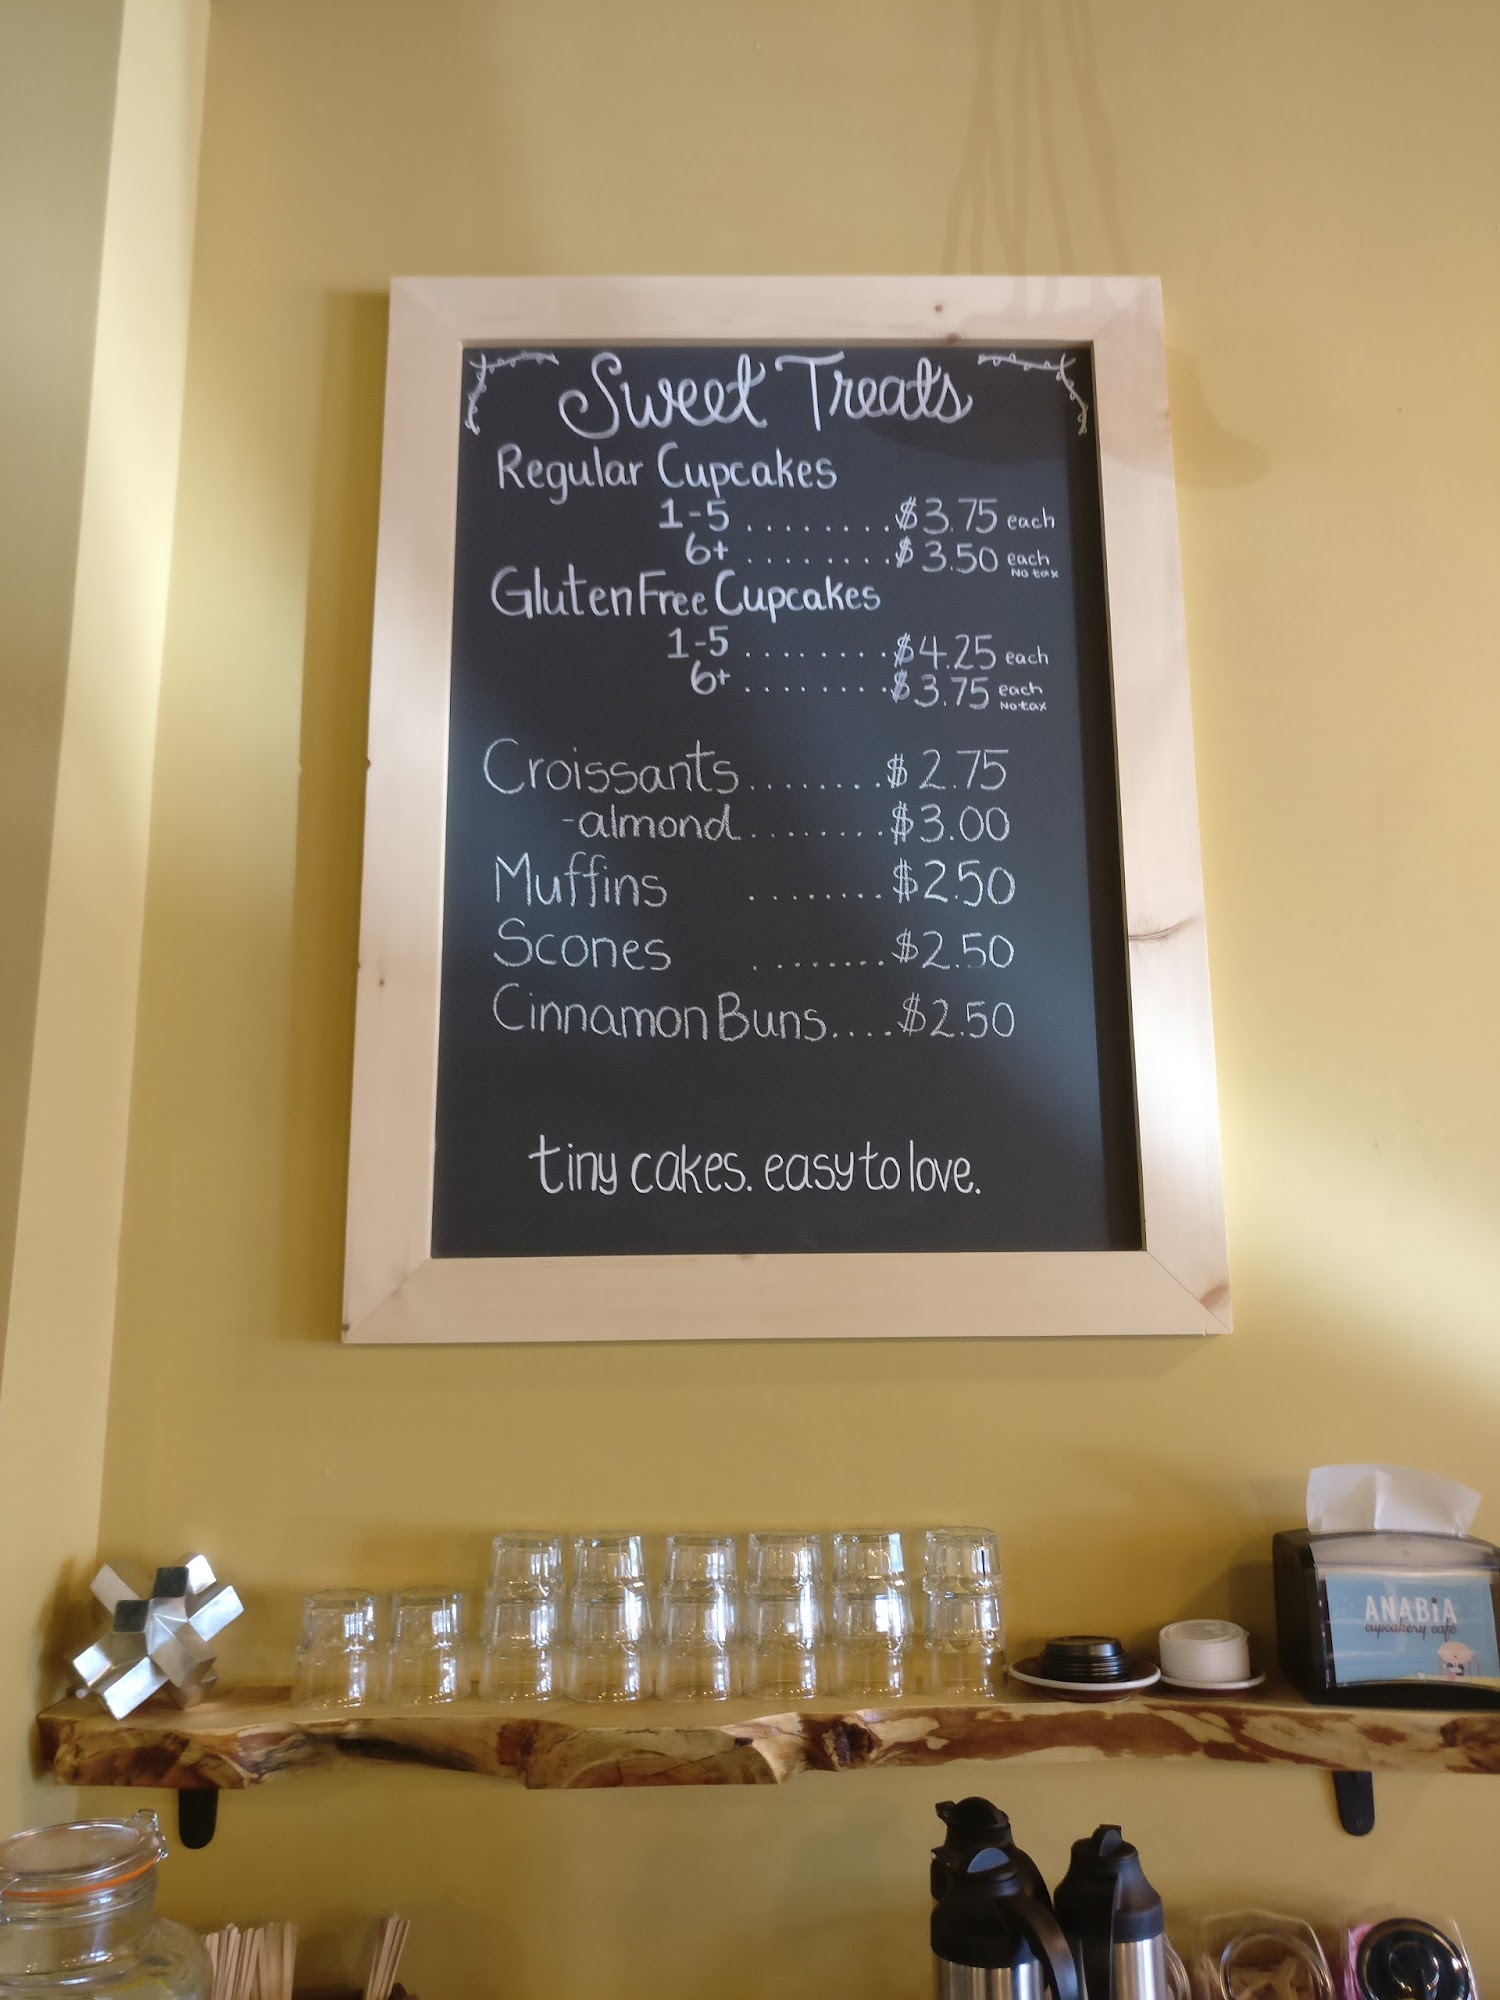 Sweet Treats
Regular Cupcakes
1-5 ........$3.75 each
6+ ........$3.50 each
No tax
Gluten Free Cupcakes
1-5 ........$4.25 each
6+ ........$3.75 each
No tax
Croissants........$2.75
-almond........$3.00
Muffins ........$2.50
Scones ........$2.50
Cinnamon Buns....$2.50
tiny cakes. easy to love.
ANABiA
cupcakery café